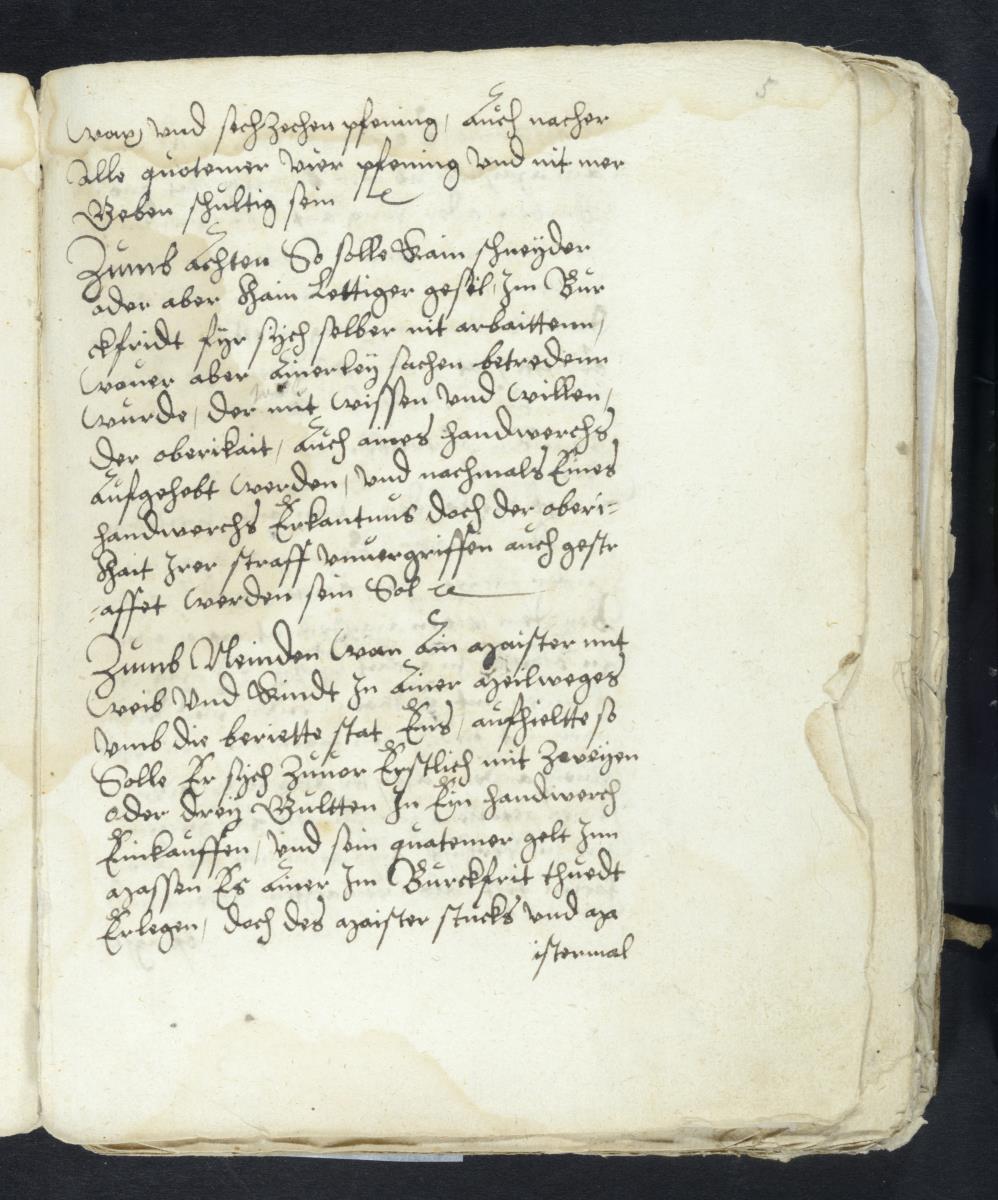 5
wax, und sechzechen pfening, Auch nacher
Alle quotemer vier pfening und nit mer
Geben schultig sein
Zumb Achten So solle Kain schneyder
oder aber Kain Lettiger gesel, Im Bur
ckfridt fyr sych selber nit arbaittenn,
wouer aber Ainerley sachen betredenn
wurde, der mit wissen und willen,
der oberikait, Auch aines handwerchs
Aufgehebt werden, und nachmals Eines
handwerchs Erkantnus doch der oberi=
Kait Irer straff unuergriffen auch gestr
=affet werden sein Sol
Zumb Neinden wan Ain maister mit
weib und Kindt In Ainer Meilweges
umb die beriette stat Ens, aufhieltte so
Solle Er sych zuuor Erstlich mit zweyen
oder dreÿ Gultten In Ein handwerch
Einkauffen, und sein quatemer gelt Inn
massen Es Ainer Im Burckfrit thuedt
Erlegen, doch des maister stucks und ma
istermal